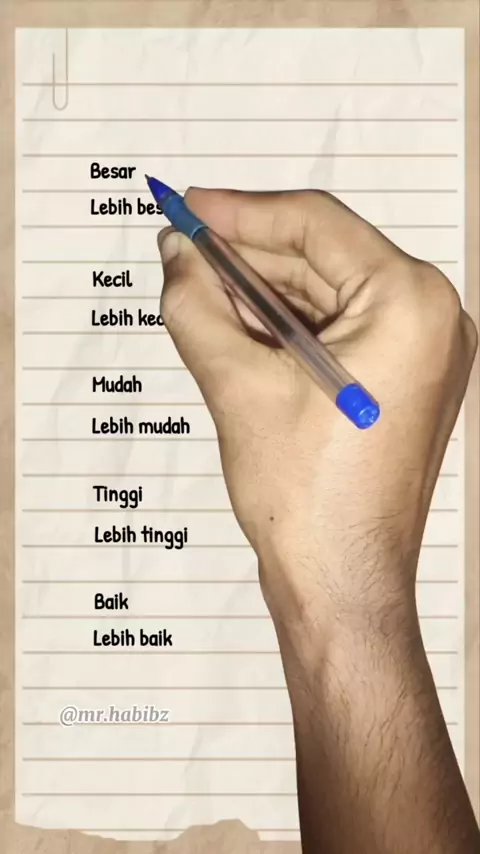 Besar
Lebih bes
Kecil
Lebih kec
Mudah
Lebih mudah
Tinggi
Lebih tinggi
Baik
Lebih baik
@mr.habibz